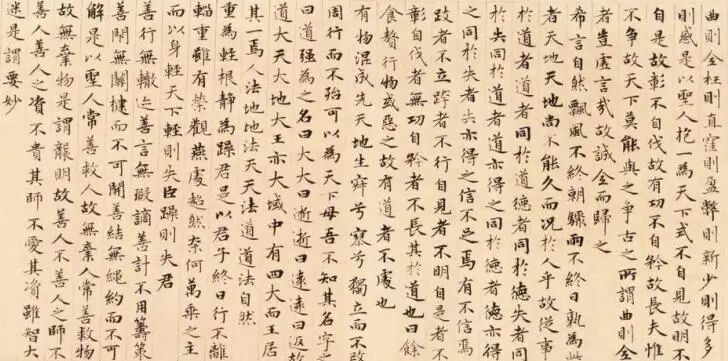 曲則全枉則直窪則盈弊則新少則得多
則惑是以聖人抱一為天下式不自見故明不
自是故彰不自伐故有功不自矜故長夫惟
不争故天下莫能與之争古之所謂曲則全
者豈虛言哉故誠全而歸之
希言自然飄風不終朝驟雨不終日孰為此
者天地天地尚不能久而況於人乎故從事
於道者道者同於道德者同於德失者同
於失同於道者道亦得之同於德者德亦得
之同於失者失亦得之信不足焉有不信焉
跂者不立跨者不行自見者不明自是者不
彰自伐者無功自矜者不長其於道也曰餘
食贅行物或惡之故有道者不處也
有物混成先天地生寂兮寥兮獨立而不改
周行而不殆可以為天下母吾不知其名字之
曰道强為之名曰大大曰逝逝曰遠遠曰返故
道大天大地大王亦大域中有四大而王居
其一焉人法地地法天天法道道法自然
重為輕根静為躁君是以君子終日行不離
輜重雖有榮觀燕處超然奈何萬乘之主
而以身輕天下輕則失臣躁則失君
善行無轍迹善言無瑕謫善計不用籌策
善閉無關楗而不可開善結無繩約而不可
解是以聖人常善救人故無棄人常善救物
故無棄物是謂襲明故善人不善人之師不
善人善人之資不貴其師不愛其資雖智大
迷是謂要妙